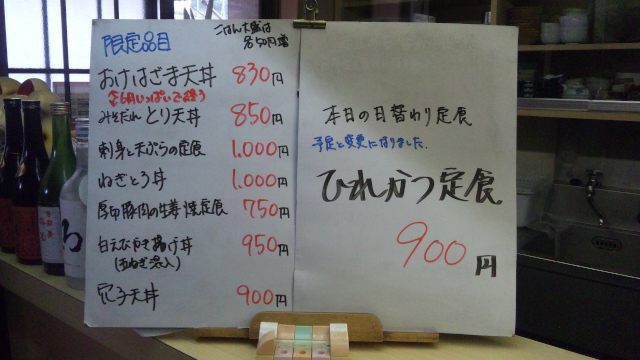 限定品目
ごはん大盛は
各50円増
おけはざま天丼 830円
6月いっぱいで終う
みそだれ とり天丼 850円
刺身と天ぷらの定食 1,000円
ねぎとろ丼 1,000円
厚切豚肉の生姜焼定食 750円
白えびかき揚げ丼 950円
(玉ねぎ入)
穴子天丼 900円
本日の日替わり定食
予定と変更になりました.
ひれかつ定食
900円